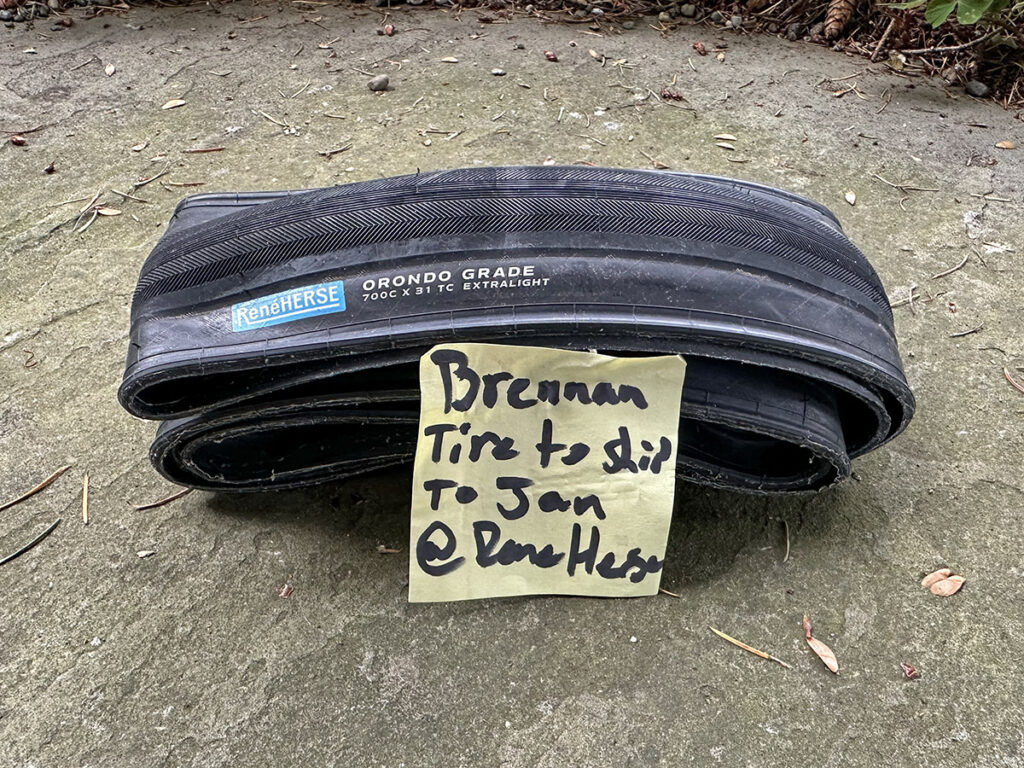 RenéHERSE
ORONDO GRADE
700C X 31 TC EXTRALIGHT
Brennan
Tire to Ship
To Jan
@ Rene Herse